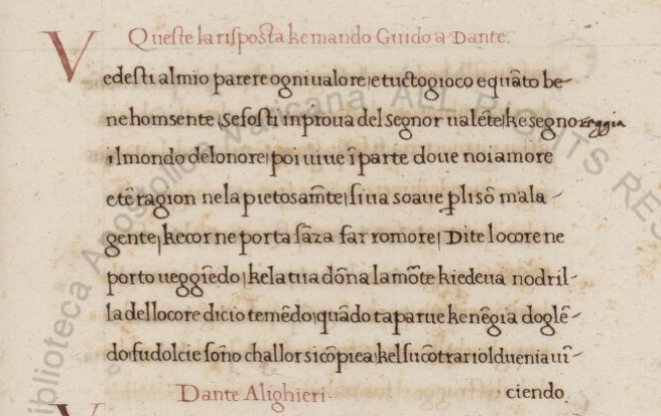 Queste la risposta ke mando Guido a Dante.
Vedesti al mio parere ogni ualore|etucto gioco e quãto be-
ne hom sente|se fosti in proua del segnor ualẽte|ke segnoreggia
il mondo delonore|poi uiue ĩ parte doue noi amore
etẽ ragion nela pietosa mẽte|si ua soaue p li sõ mala-
gente|ke cor ne porta sãza far romore| Dite lo core ne
porto ueggiẽdo|ke la tua dõna la mõte kiedeua nodril-
la dello core di cio temẽdo|quãdo taparue ke nẽgia doglẽ-
do|fu dolcie soño challor si cõpiea|kel su cõtrario lduenia uĩ-
ciendo.
Dante Alighieri
V
Biblioteca Apostolica Vaticana ALL RIGHTS RES